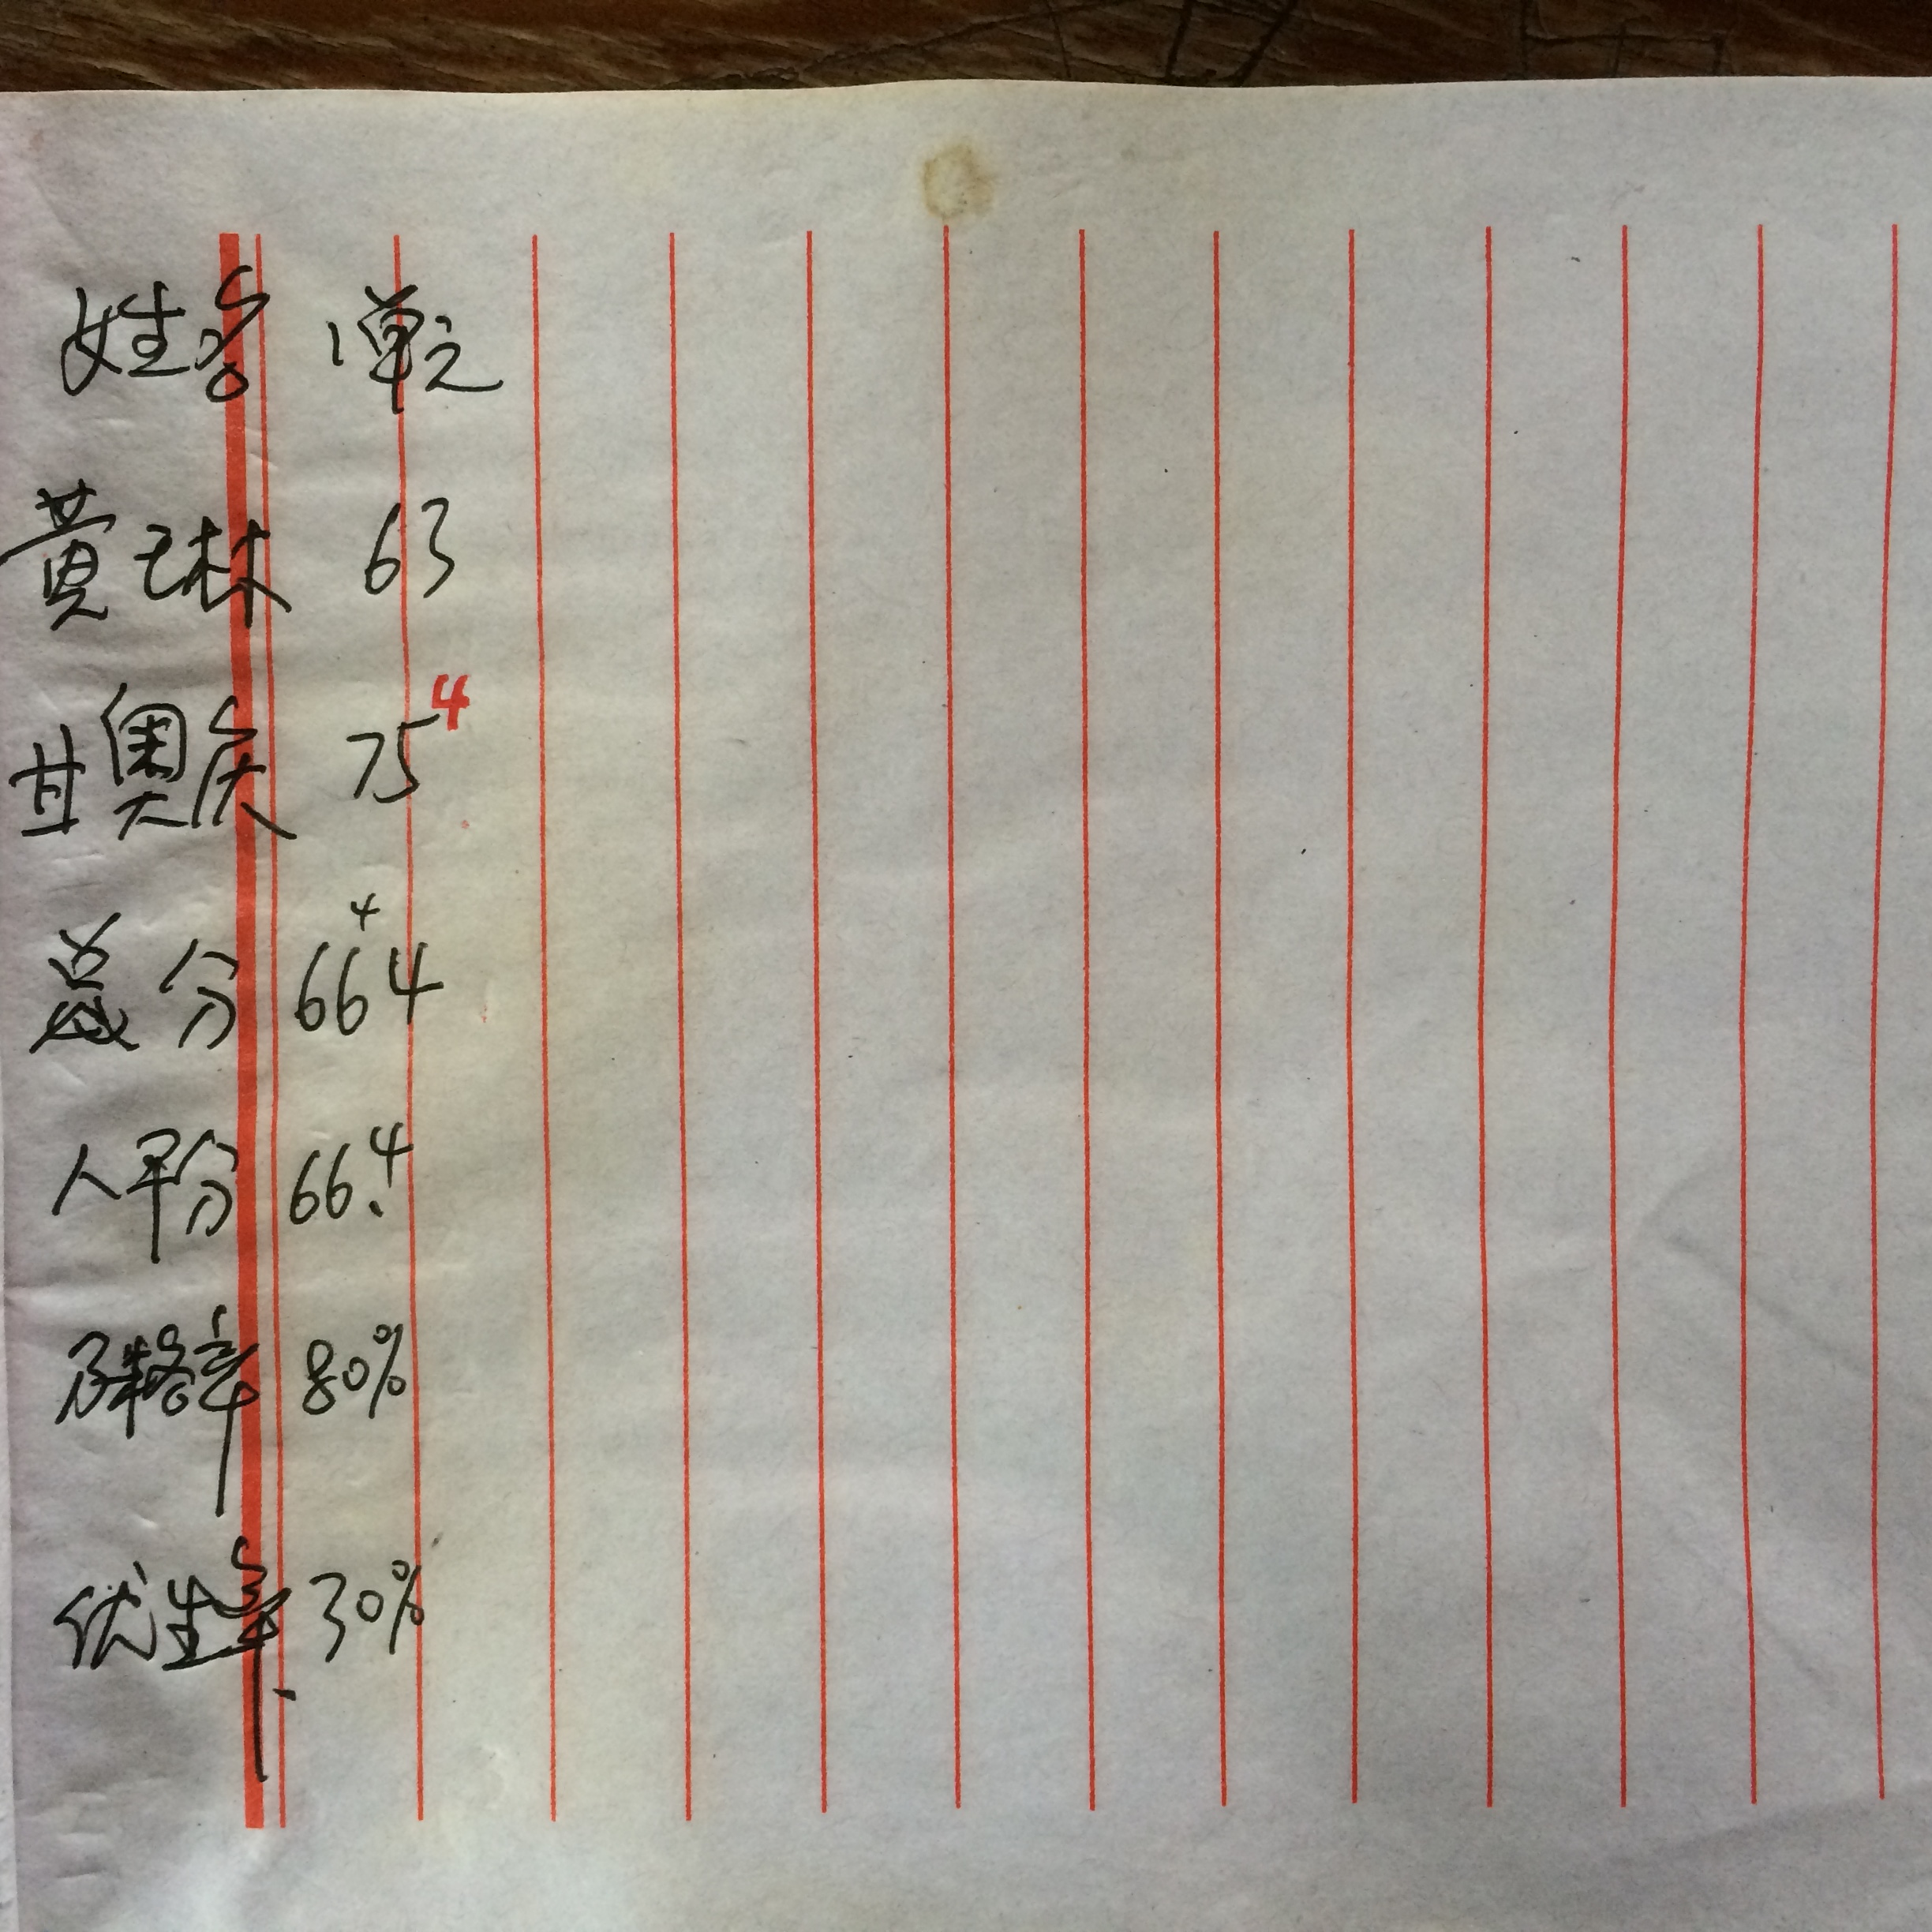 姓名 1单元
黄琳 63
甘奥庆 75 4
总分 664
人平分 66.4
及格率 80%
优生率 30%